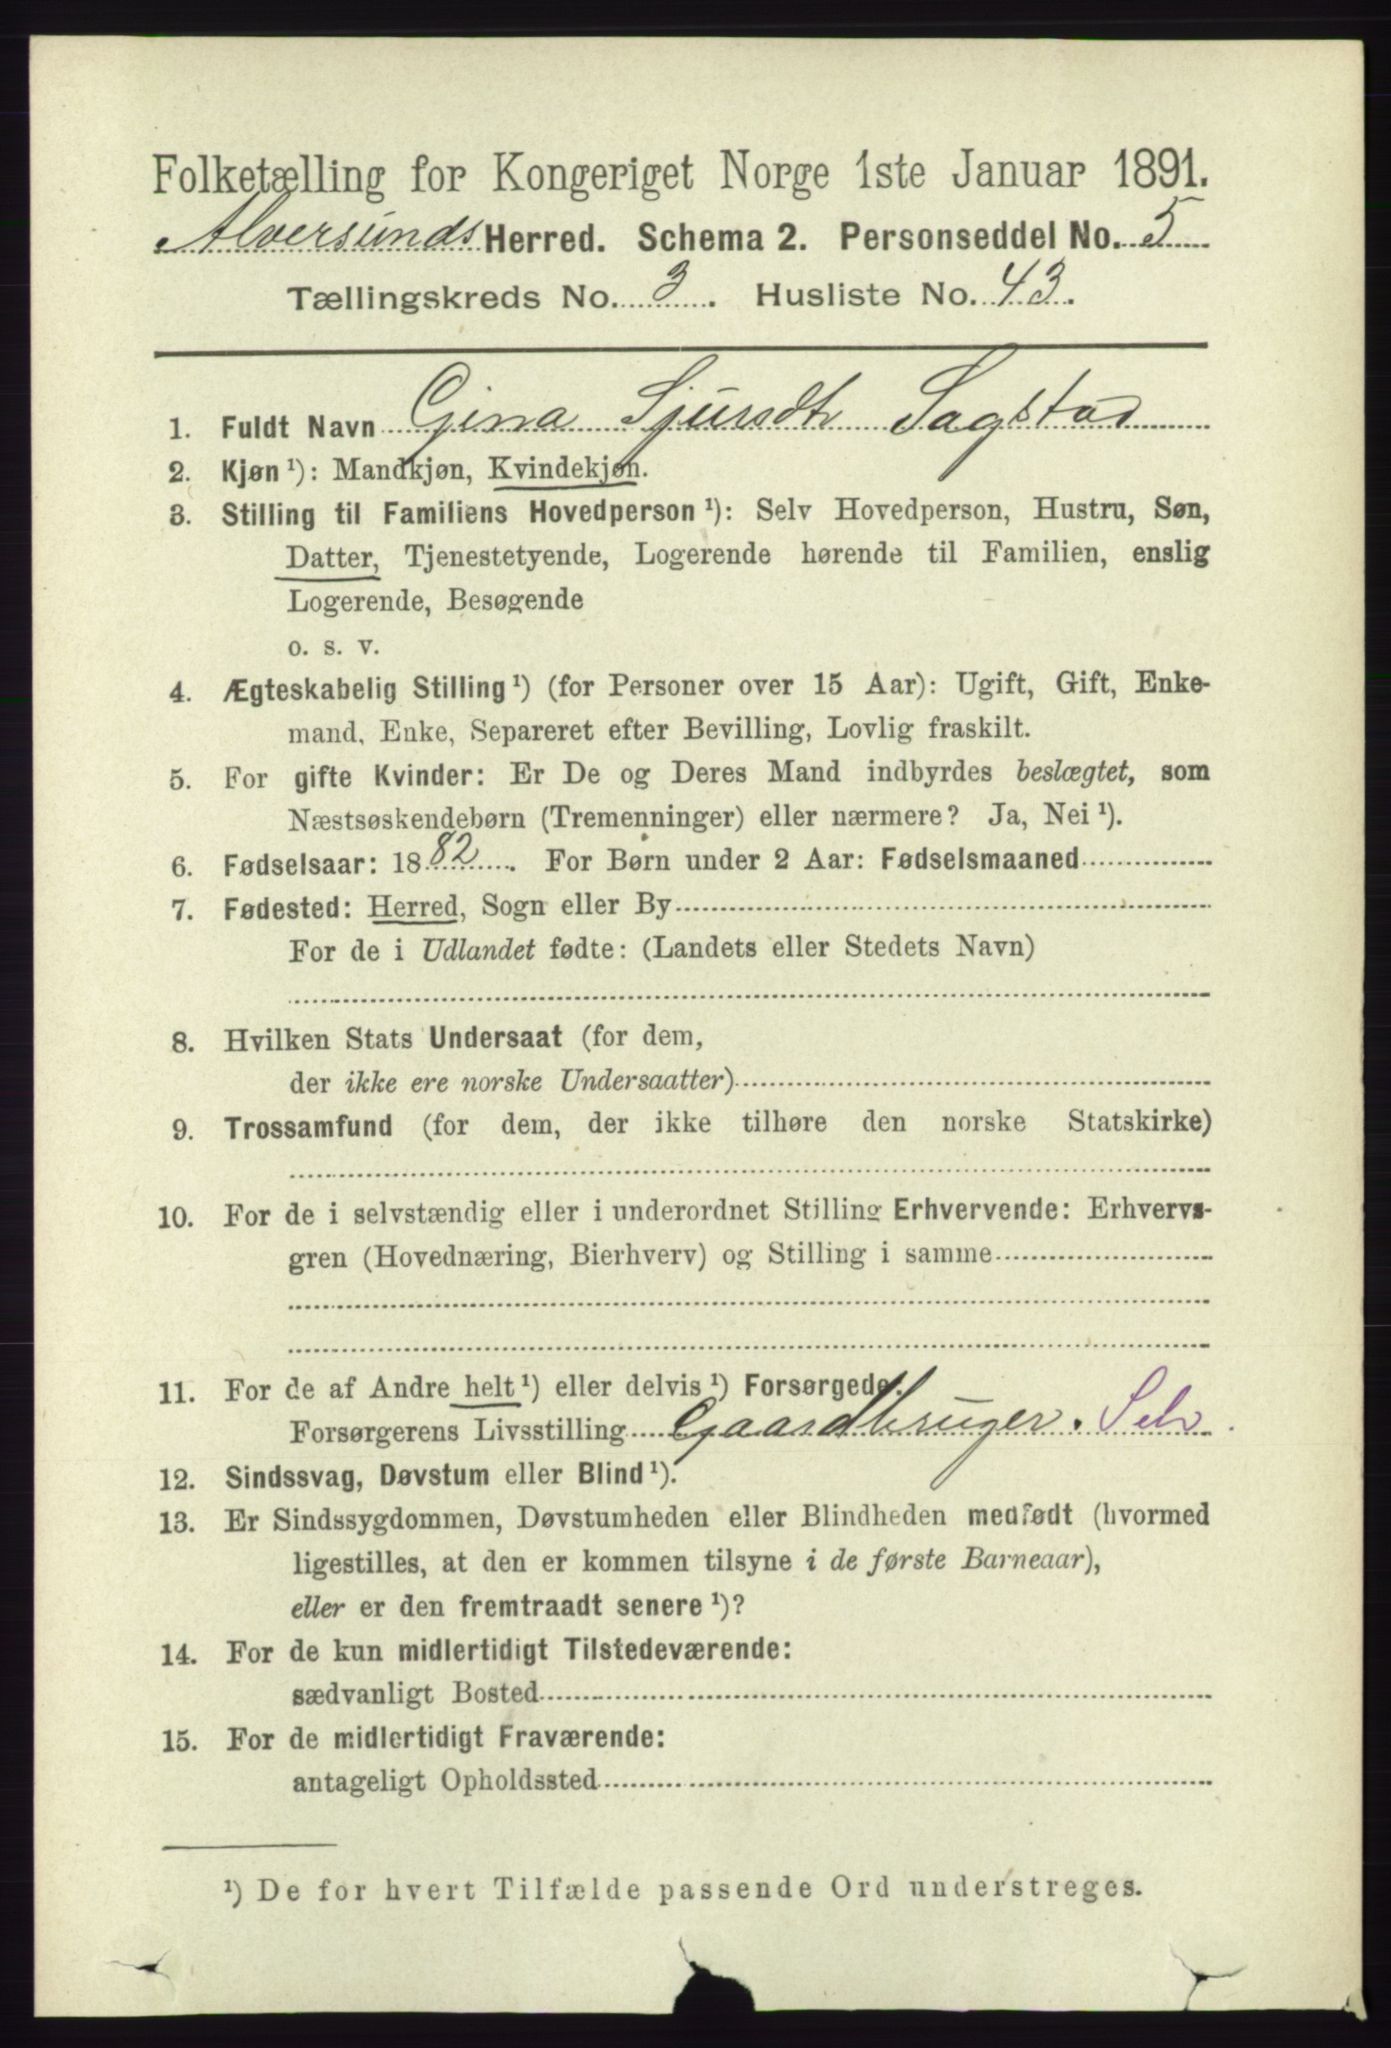 Folketælling for Kongeriget Norge 1ste Januar 1891.
Alversunds Herred. Schema 2. Personseddel No. 5
Tællingskreds No. 3. Husliste No. 43.
1. Fuldt Navn Gina Sjursdtr Sagstad
2. Kjøn ¹): Mandkjøn, Kvindekjøn.
3. Stilling til Familiens Hovedperson ¹): Selv Hovedperson, Hustru, Søn,
Datter, Tjenestetyende, Logerende hørende til Familien, enslig
Logerende, Besøgende
o. s. v.
4. Ægteskabelig Stilling ¹) (for Personer over 15 Aar): Ugift, Gift, Enke-
mand, Enke, Separeret efter Bevilling, Lovlig fraskilt.
5. For gifte Kvinder: Er De og Deres Mand indbyrdes beslægtet, som
Næstsøskendebørn (Tremenninger) eller nærmere? Ja, Nei ¹).
6. Fødselsaar: 1882. For Børn under 2 Aar: Fødselsmaaned
7. Fødested: Herred, Sogn eller By
For de i Udlandet fødte: (Landets eller Stedets Navn)
8. Hvilken Stats Undersaat (for dem,
der ikke ere norske Undersaatter)
9. Trossamfund (for dem, der ikke tilhøre den norske Statskirke)
10. For de i selvstændig eller i underordnet Stilling Erhvervende: Erhvervs-
gren (Hovednæring, Bierhverv) og Stilling i samme
11. For de af Andre helt ¹) eller delvis ¹) Forsørgede.
Forsørgerens Livsstilling Gaardbruger. Selv.
12. Sindssvag, Døvstum eller Blind ¹).
13. Er Sindssygdommen, Døvstumheden eller Blindheden medfødt (hvormed
ligestilles, at den er kommen tilsyne i de første Barneaar),
eller er den fremtraadt senere ¹)?
14. For de kun midlertidigt Tilstedeværende:
sædvanligt Bosted
15. For de midlertidigt Fraværende:
antageligt Opholdssted
¹) De for hvert Tilfælde passende Ord understreges.